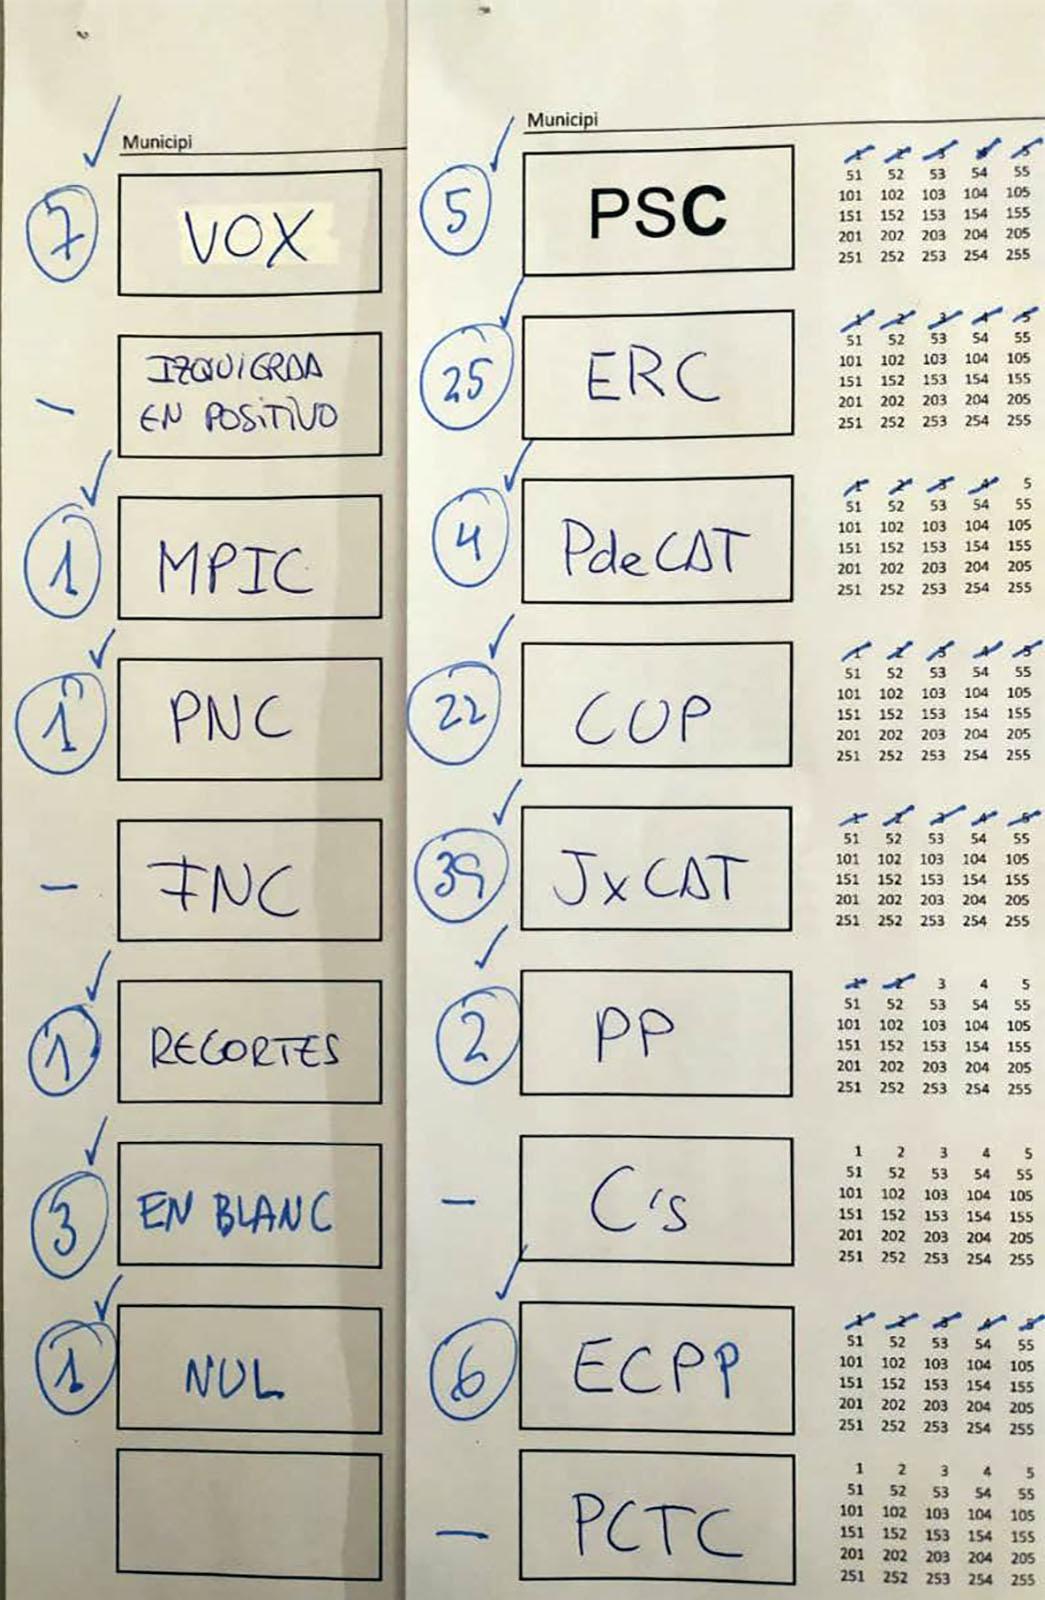 Municipi
7 VOX
- IZQUIERDA
EN POSITIVO
1 MPIC
1 PNC
- FNC
1 RECORTES
3 EN BLANC
1 NUL
Municipi
5 PSC
1 2 3 4 5
51 52 53 54 55
101 102 103 104 105
151 152 153 154 155
201 202 203 204 205
251 252 253 254 255
25 ERC
1 2 3 4 5
51 52 53 54 55
101 102 103 104 105
151 152 153 154 155
201 202 203 204 205
251 252 253 254 255
4 PdeCAT
1 2 3 4 5
51 52 53 54 55
101 102 103 104 105
151 152 153 154 155
201 202 203 204 205
251 252 253 254 255
22 CUP
1 2 3 4 5
51 52 53 54 55
101 102 103 104 105
151 152 153 154 155
201 202 203 204 205
251 252 253 254 255
39 JxCAT
1 2 3 4 5
51 52 53 54 55
101 102 103 104 105
151 152 153 154 155
201 202 203 204 205
251 252 253 254 255
2 PP
1 2 3 4 5
51 52 53 54 55
101 102 103 104 105
151 152 153 154 155
201 202 203 204 205
251 252 253 254 255
- C's
1 2 3 4 5
51 52 53 54 55
101 102 103 104 105
151 152 153 154 155
201 202 203 204 205
251 252 253 254 255
6 ECPP
1 2 3 4 5
51 52 53 54 55
101 102 103 104 105
151 152 153 154 155
201 202 203 204 205
251 252 253 254 255
- PCTC
1 2 3 4 5
51 52 53 54 55
101 102 103 104 105
151 152 153 154 155
201 202 203 204 205
251 252 253 254 255